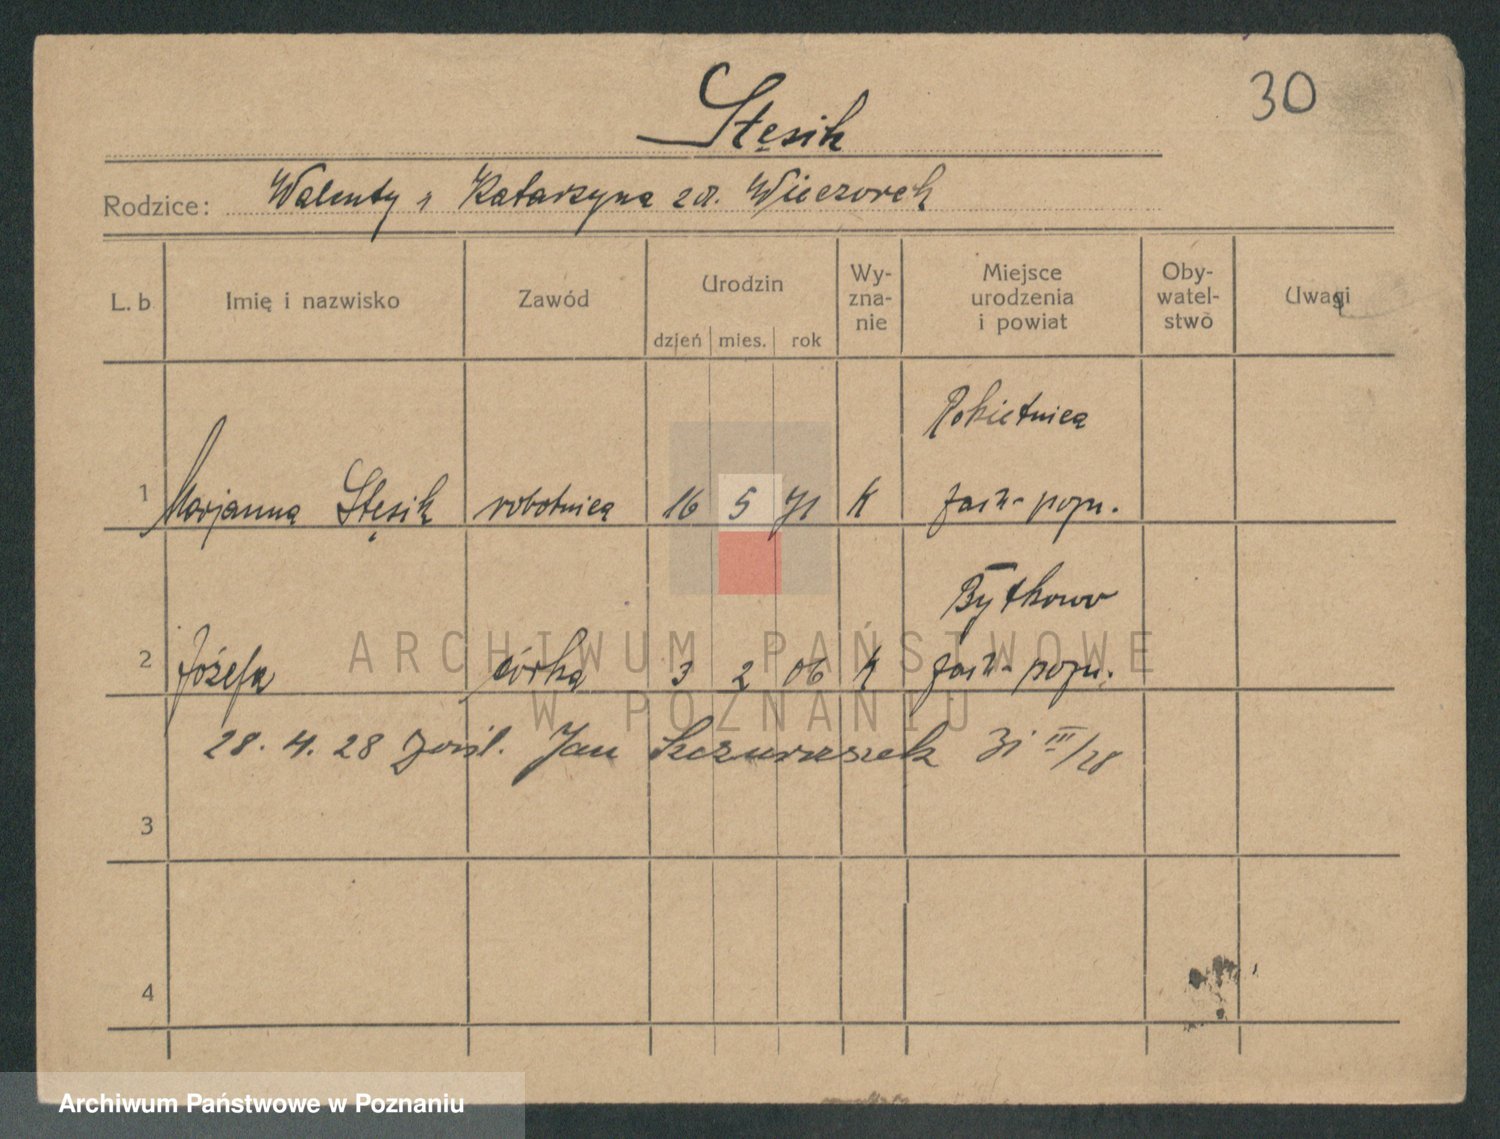 30
Stęsik
Rodzice: Walenty i Katarzyna zd. Wieczorek
L. b Imię i nazwisko Zawód Urodzin dzień mies. rok Wy-zna-nie Miejsce urodzenia i powiat Oby-watel-stwo Uwagi
Rokietnica
1 Marjanna Stęsik robotnica 16 5 71 K pozn.
Bytkowo
2 Józefa córka 3 2 06 K pozn.
28. 4. 28 Jan 31 III/28
3
4
ARCHIWUM PAŃSTWOWE
W POZNANIU
Archiwum Państwowe w Poznaniu